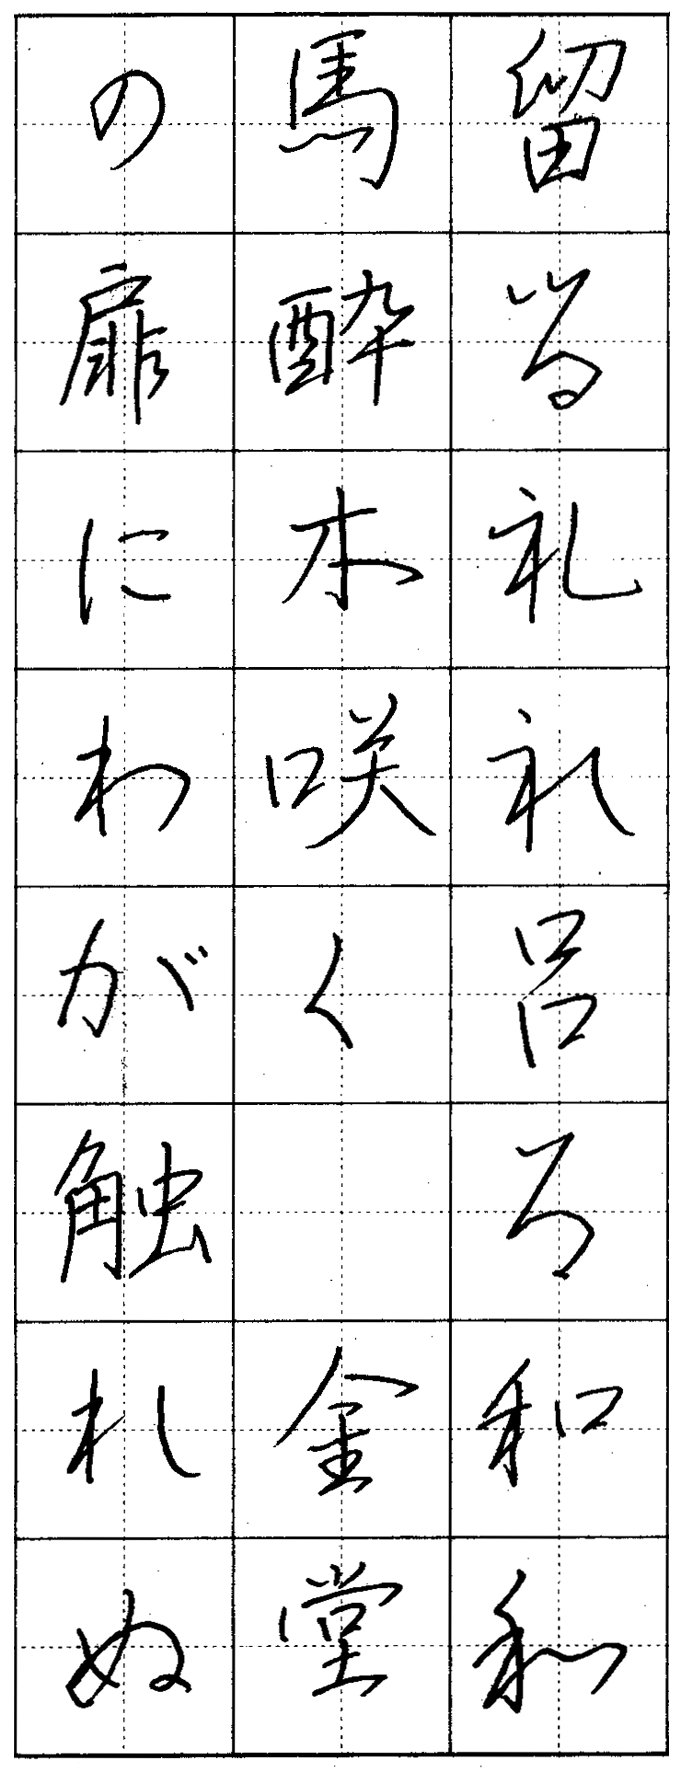 留る礼れ呂ろ和わ
馬酔木咲く　金堂
の扉にわが触れぬ